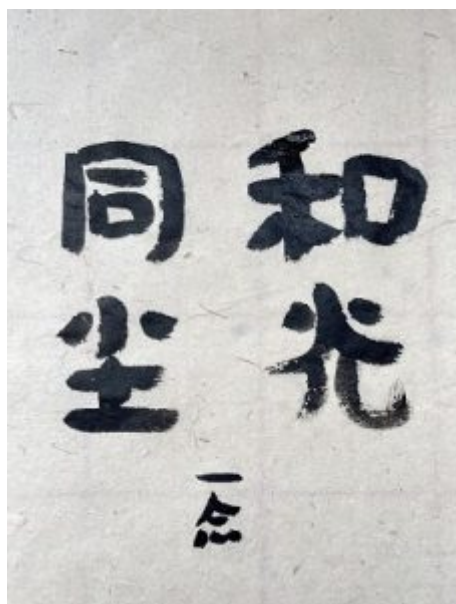 和光
同尘
一念